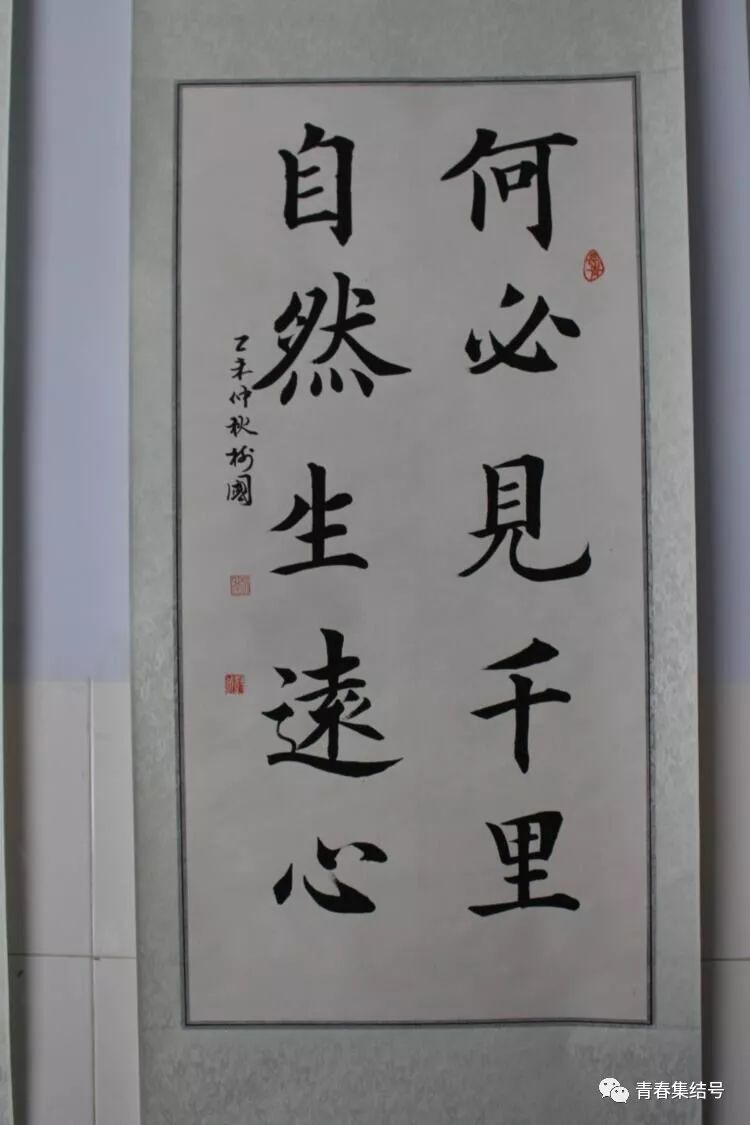 何必見千里
自然生遠心
乙未仲秋樹國
青春集结号